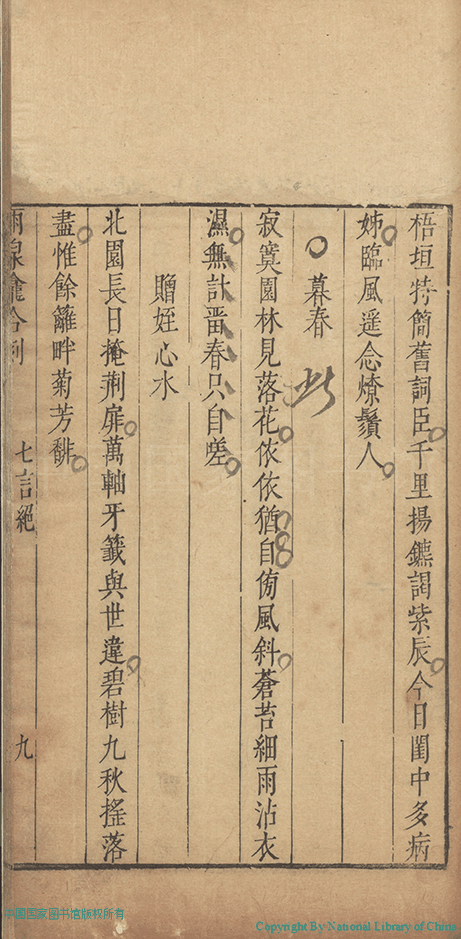 梧垣特簡舊詞臣千里揚鑣謁紫辰今日閨中多病
姊臨風遥念燎鬚人
暮春
此
寂寞園林見落花依依猶自傍風斜蒼苔細雨沾衣
濕無計畱春只自嗟
贈姪心水
北園長日掩荆扉萬軸牙籤與世違碧樹九秋搖落
盡惟餘籬畔菊芳馡
雨泉龕合刻 七言絕 九
中国国家图书馆版权所有
Copyright By National Library of China